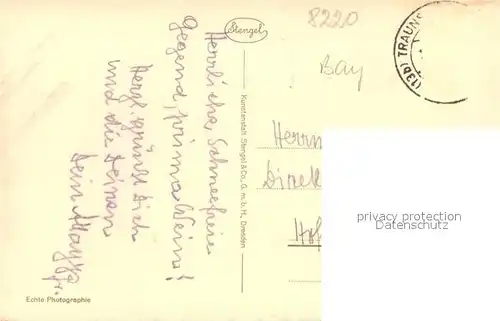 Stengel
8220
(13b) TRAUNS
Bay
Herrliche, Schneefreie
Gegend, prima Wein!
Herzl. grüßt Dich
und die Deinen
Dein
Kunstanstalt Stengel & Co., G. m. b. H., Dresden
Herrn
Direk
Hof
privacy protection
Datenschutz
Echte Photographie